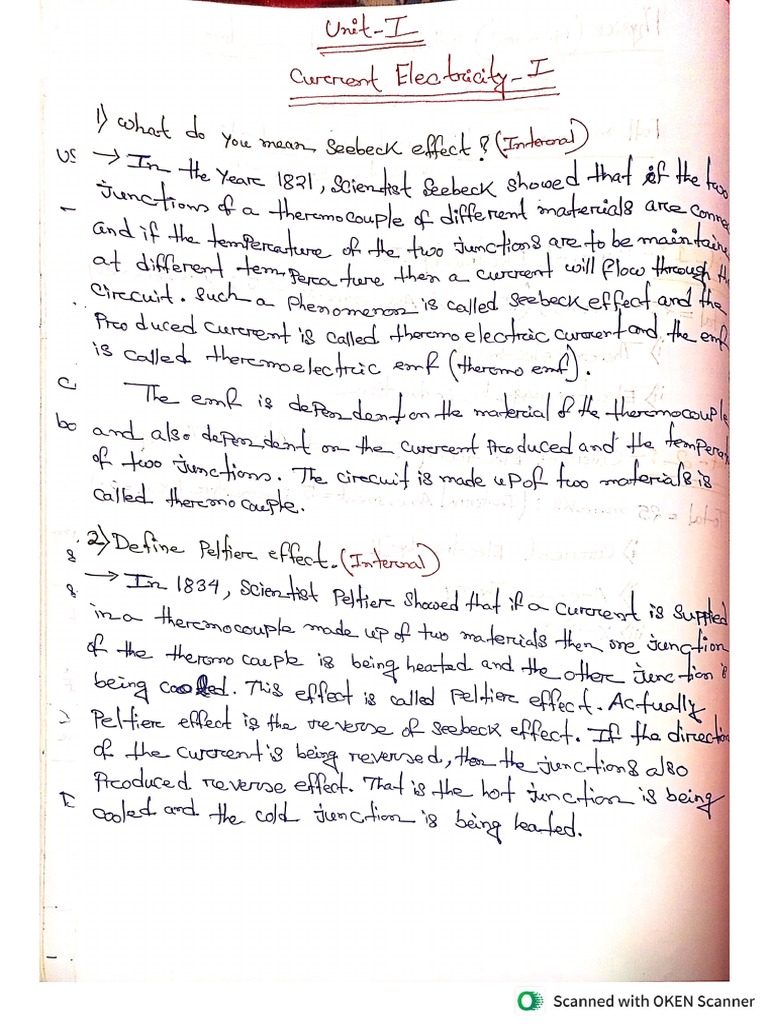 Unit-I
Current Electricity-I
1) What do you mean Seebeck effect? (Internal)
→ In the Year 1821, Scientist Seebeck showed that if the two
junctions of a thermocouple of different materials are conne
and if the temperature of the two junctions are to be maintain
at different temperature then a current will flow through th
circuit. Such a Phenomenon is called Seebeck effect and the
Produced current is called thermoelectric current and the emf
is called thermoelectric emf (thermo emf).
The emf is dependent on the material of the thermocouple
and also dependent on the current Produced and the temperat
of two junctions. The circuit is made up of two materials is
called thermocouple.
2) Define Peltier effect. (Internal)
→ In 1834, Scientist Peltier showed that if a current is supplied
in a thermocouple made up of two materials then one junction
of the thermocouple is being heated and the other junction is
being cooled. This effect is called Peltier effect. Actually
Peltier effect is the reverse of Seebeck effect. If the direction
of the current is being reversed, then the junctions also
Produced reverse effect. That is the hot junction is being
cooled and the cold junction is being heated.
Scanned with OKEN Scanner